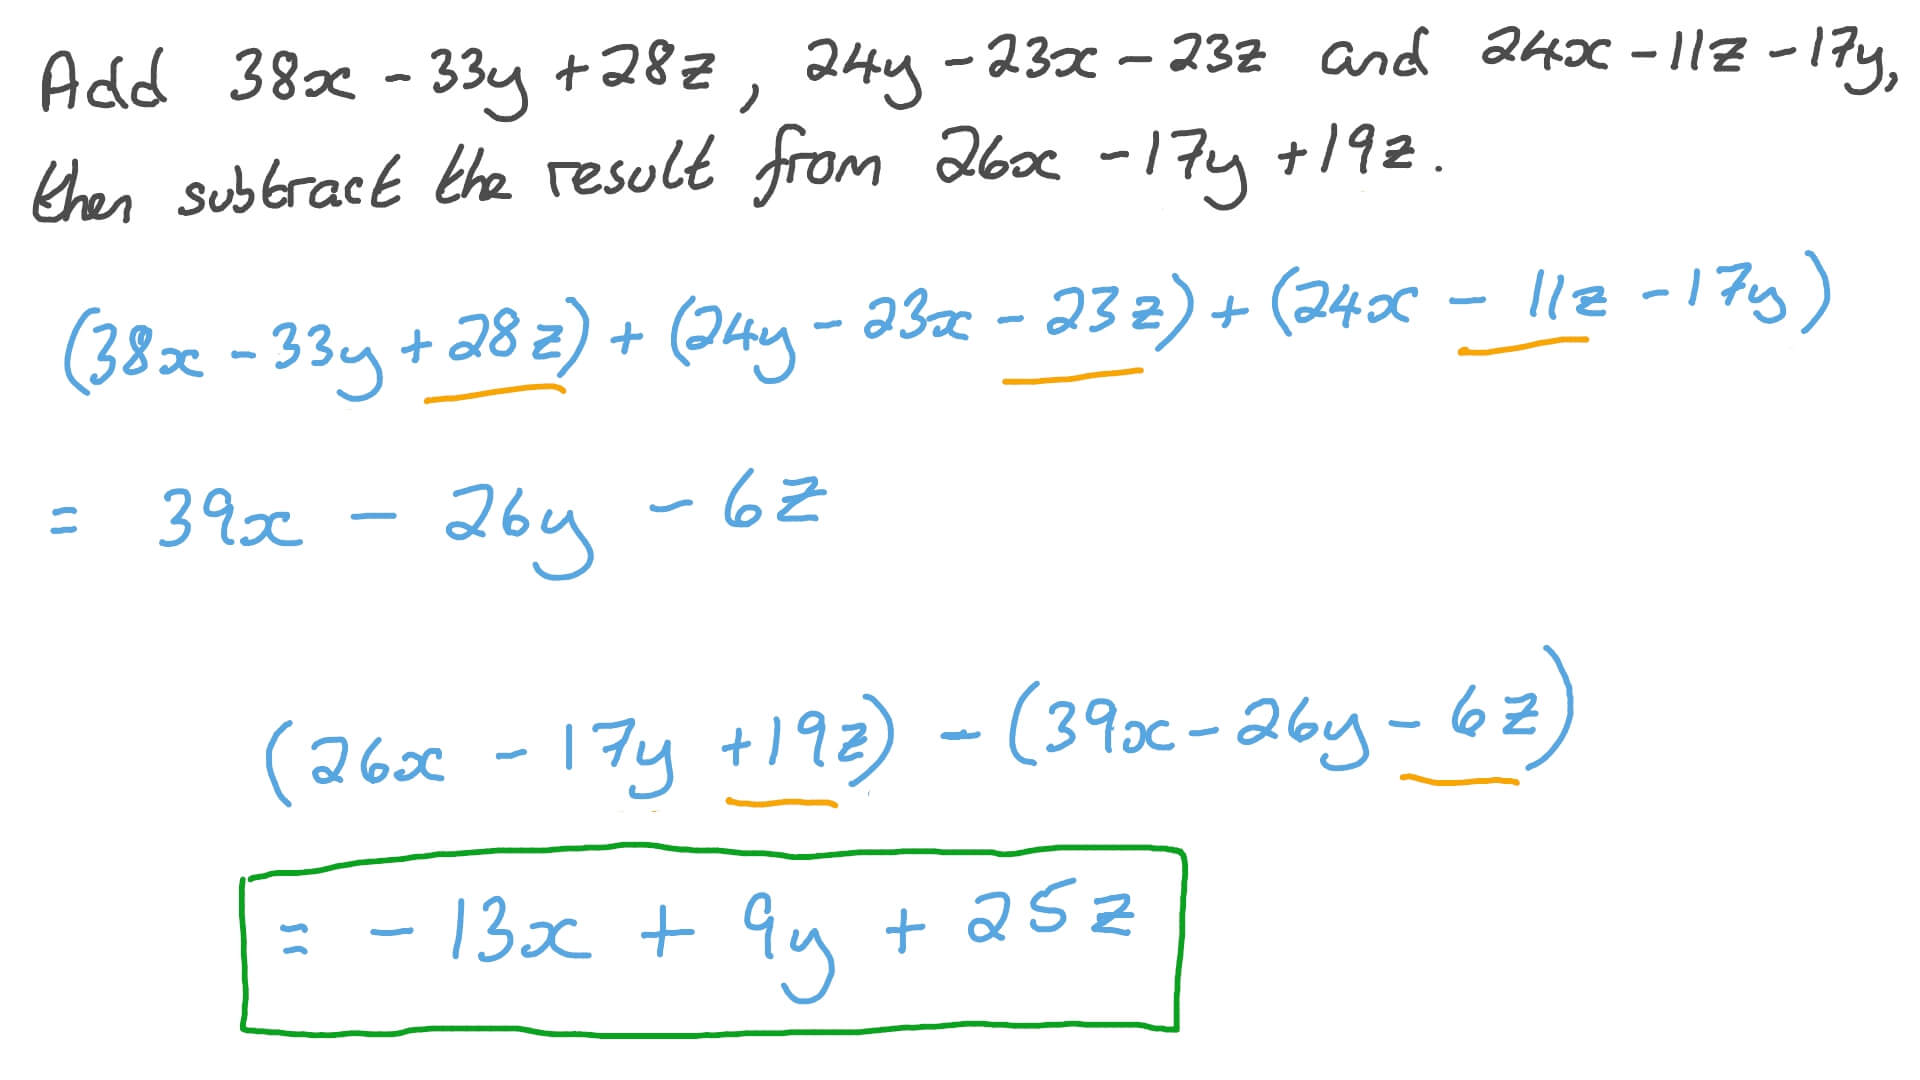 Add 38x - 33y + 28z, 24y - 23x - 23z and 24x - 11z - 17y,
then subtract the result from 26x - 17y + 19z.
(38x - 33y + 28z) + (24y - 23x - 23z) + (24x - 11z - 17y)
= 39x - 26y - 6z
(26x - 17y + 19z) - (39x - 26y - 6z)
= - 13x + 9y + 25z